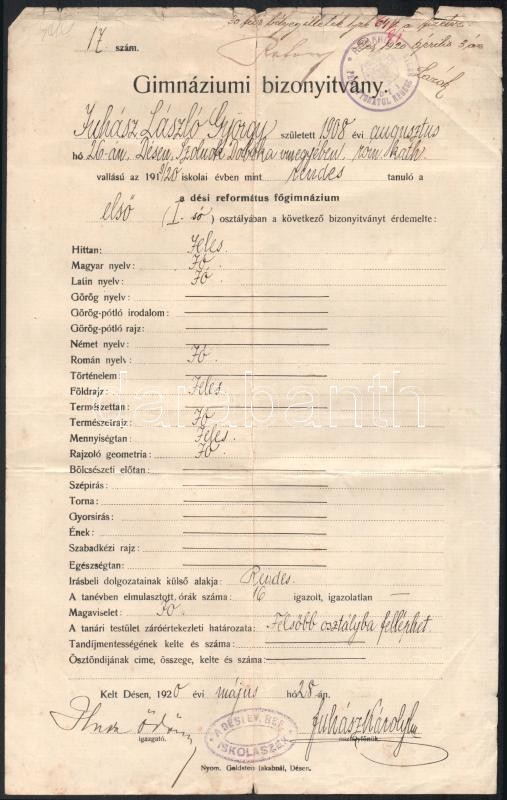 17 szám.
Gimnáziumi bizonyítvány.
Juhász László György született 1908 évi augusztus
hó 26-án, Désen, Szolnok Doboka vmegyében, rom. kath.
vallású az 1919/20 iskolai évben mint rendes tanuló a
a dési református főgimnázium
első (I-ső) osztályában a következő bizonyítványt érdemelte:
Hittan: Jeles.
Magyar nyelv: Jó
Latin nyelv: Jó
Görög nyelv:
Görög-pótló irodalom:
Görög-pótló rajz:
Német nyelv:
Román nyelv: Jó
Történelem:
Földrajz: Jeles.
Természettan:
Természetrajz: Jó
Mennyiségtan: Jeles.
Rajzoló geometria: Jó
Bölcsészeti előtan:
Szépírás:
Torna:
Gyorsírás:
Ének:
Szabadkézi rajz:
Egészségtan:
Irásbeli dolgozatainak külső alakja: Rendes.
A tanévben elmulasztott órák száma: 16 igazolt, igazolatlan —
Magaviselet: Jó
A tanári testület záróértekezleti határozata: Felsőbb osztályba felléphet
Tandíjmentességének kelte és száma:
Ösztöndíjának címe, összege, kelte és száma:
Kelt Désen, 1920 évi május hó 28-án.
Ödön
igazgató.
A DÉSI EV. REF.
ISKOLASZÉK
Juhász Károly
osztályfőnök.
Nyom. Goldstein Jakabnál, Désen.
darabanth